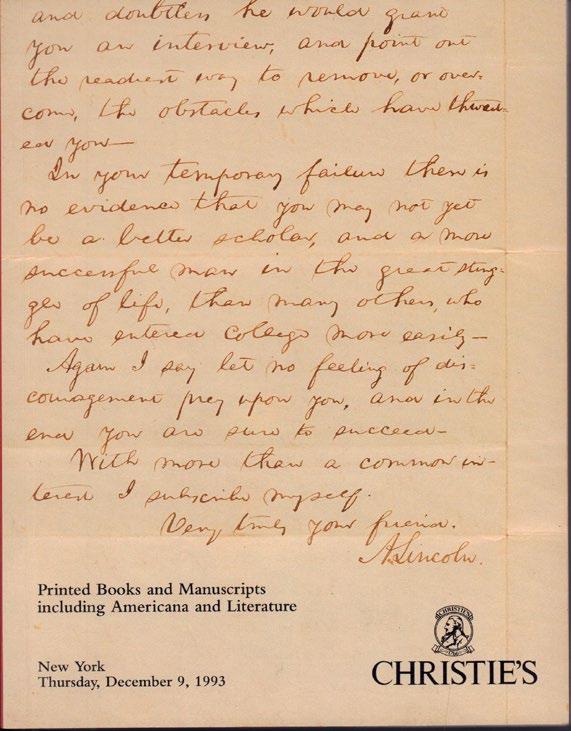 and doubtless he would grant
you an interview, and point out
the readiest way to remove, or over-
come, the obstacles which have thwart-
ed you—
In your temporary failure there is
no evidence that you may not yet
be a better scholar, and a more
successful man in the great strug-
gle of life, than many others, who
have entered college more easily—
Again I say let no feeling of dis-
couragement prey upon you, and in the
end you are sure to succeed—
With more than a common in-
terest I subscribe myself.
Very truly your friend.
A. Lincoln.
Printed Books and Manuscripts
including Americana and Literature
New York
Thursday, December 9, 1993
CHRISTIE'S
CHRISTIE'S